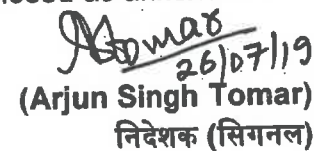 Atomar
26/07/19
(Arjun Singh Tomar)
निदेशक (सिगनल)